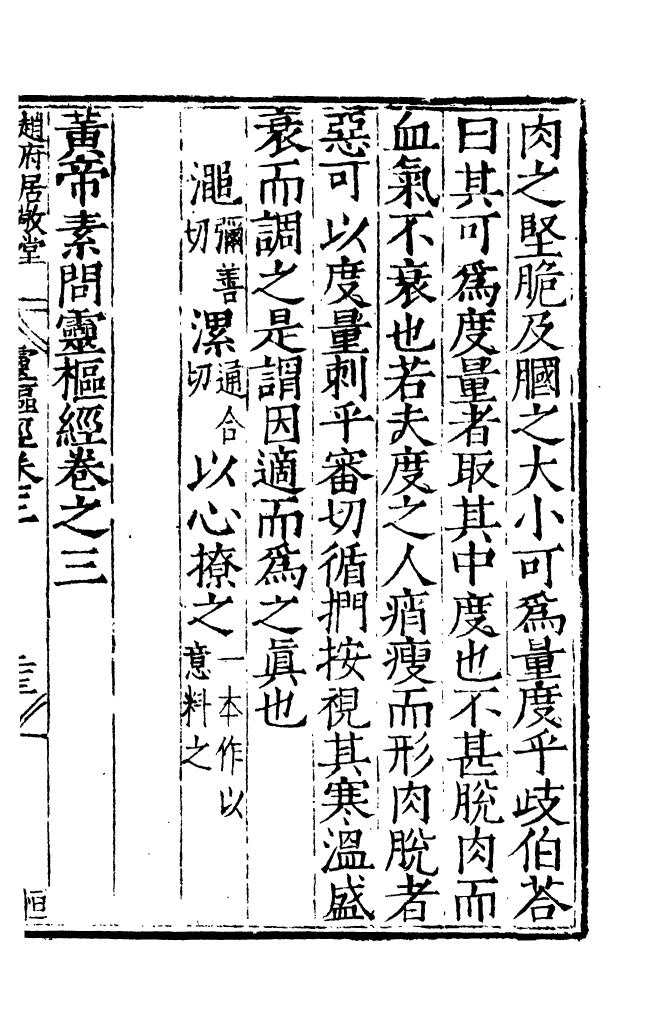 肉之堅脆及膕之大小可爲量度乎歧伯荅
曰其可爲度量者取其中度也不甚脫肉而
血氣不衰也若夫度之人痟瘦而形肉脫者
惡可以度量刺乎審切循捫按視其寒溫盛
衰而調之是謂因適而爲之眞也
澠彌善切漯通合切以心撩之一本作以意料之
黃帝素問靈樞經卷之三
趙府居敬堂 靈樞經卷三
恒